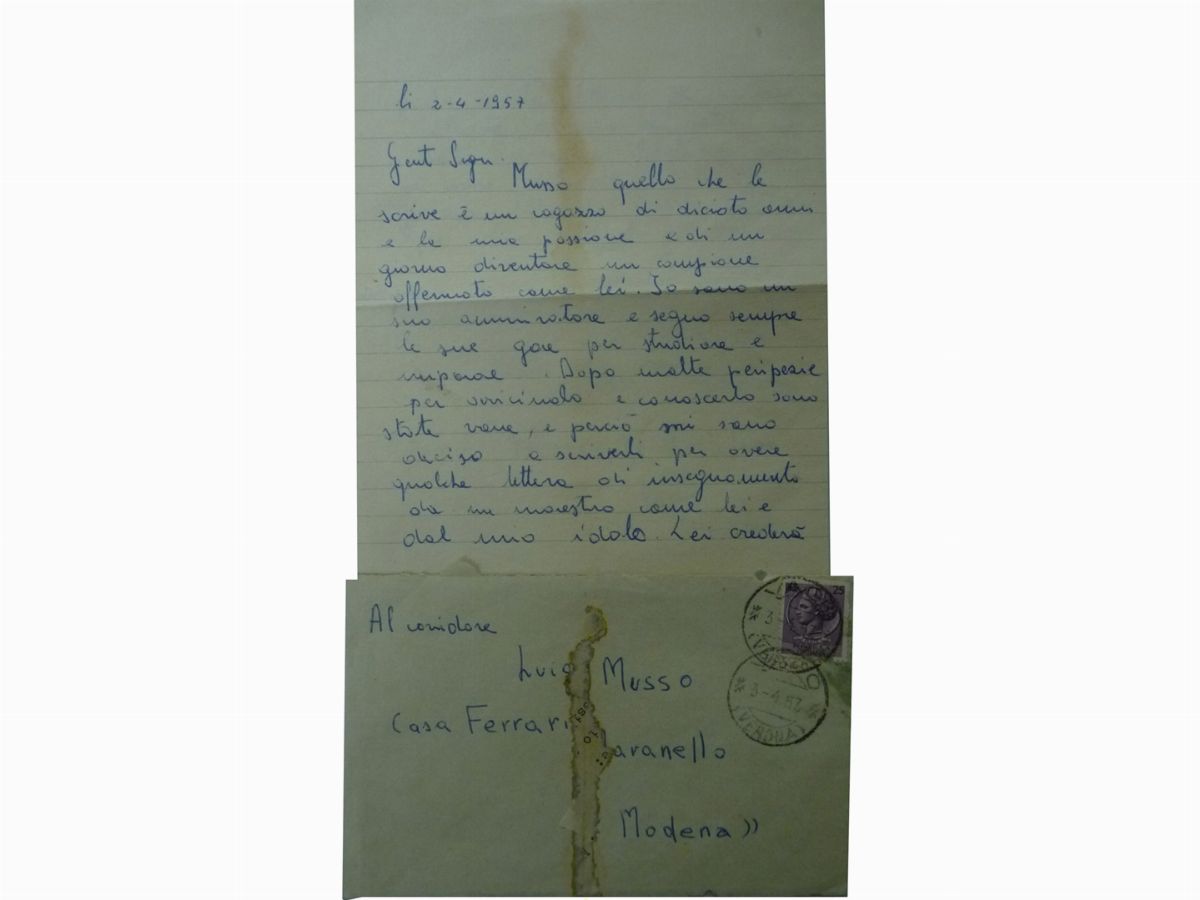 li 2-4-1957
Gent Sign.
Musso quello che le
scrive è un ragazzo di dicioto anni
e la una passione e di un
giorno diventare un campione
affermato come lei. Io sono un
suo ammiratore e seguo sempre
le sue gare per studiare e
imparare. Dopo molte peripezie
per avvicinarlo e conoscerlo sono
state vane, e perciò mi sono
deciso a scriverli per avere
qualche lettera di insegnamento
da un maestro come lei e
dal uno idolo. Lei crederà
Al corridore
Luig Musso
Casa Ferrari
aranello
Modena))
25
3-4.57
(VERONA)